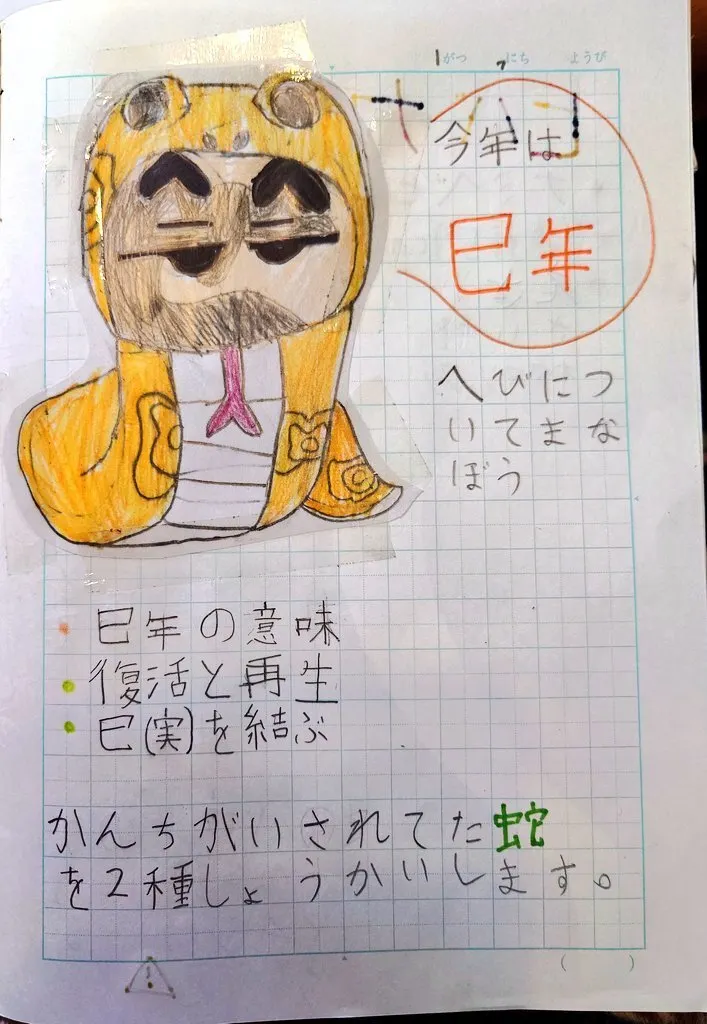 1がつ 7にち ようび
今年は
巳年
へびにつ
いてまな
ぼう
巳年の意味
復活と再生
巳(実)を結ぶ
かんちがいされてた蛇
を2種しょうかいします。
( )
!